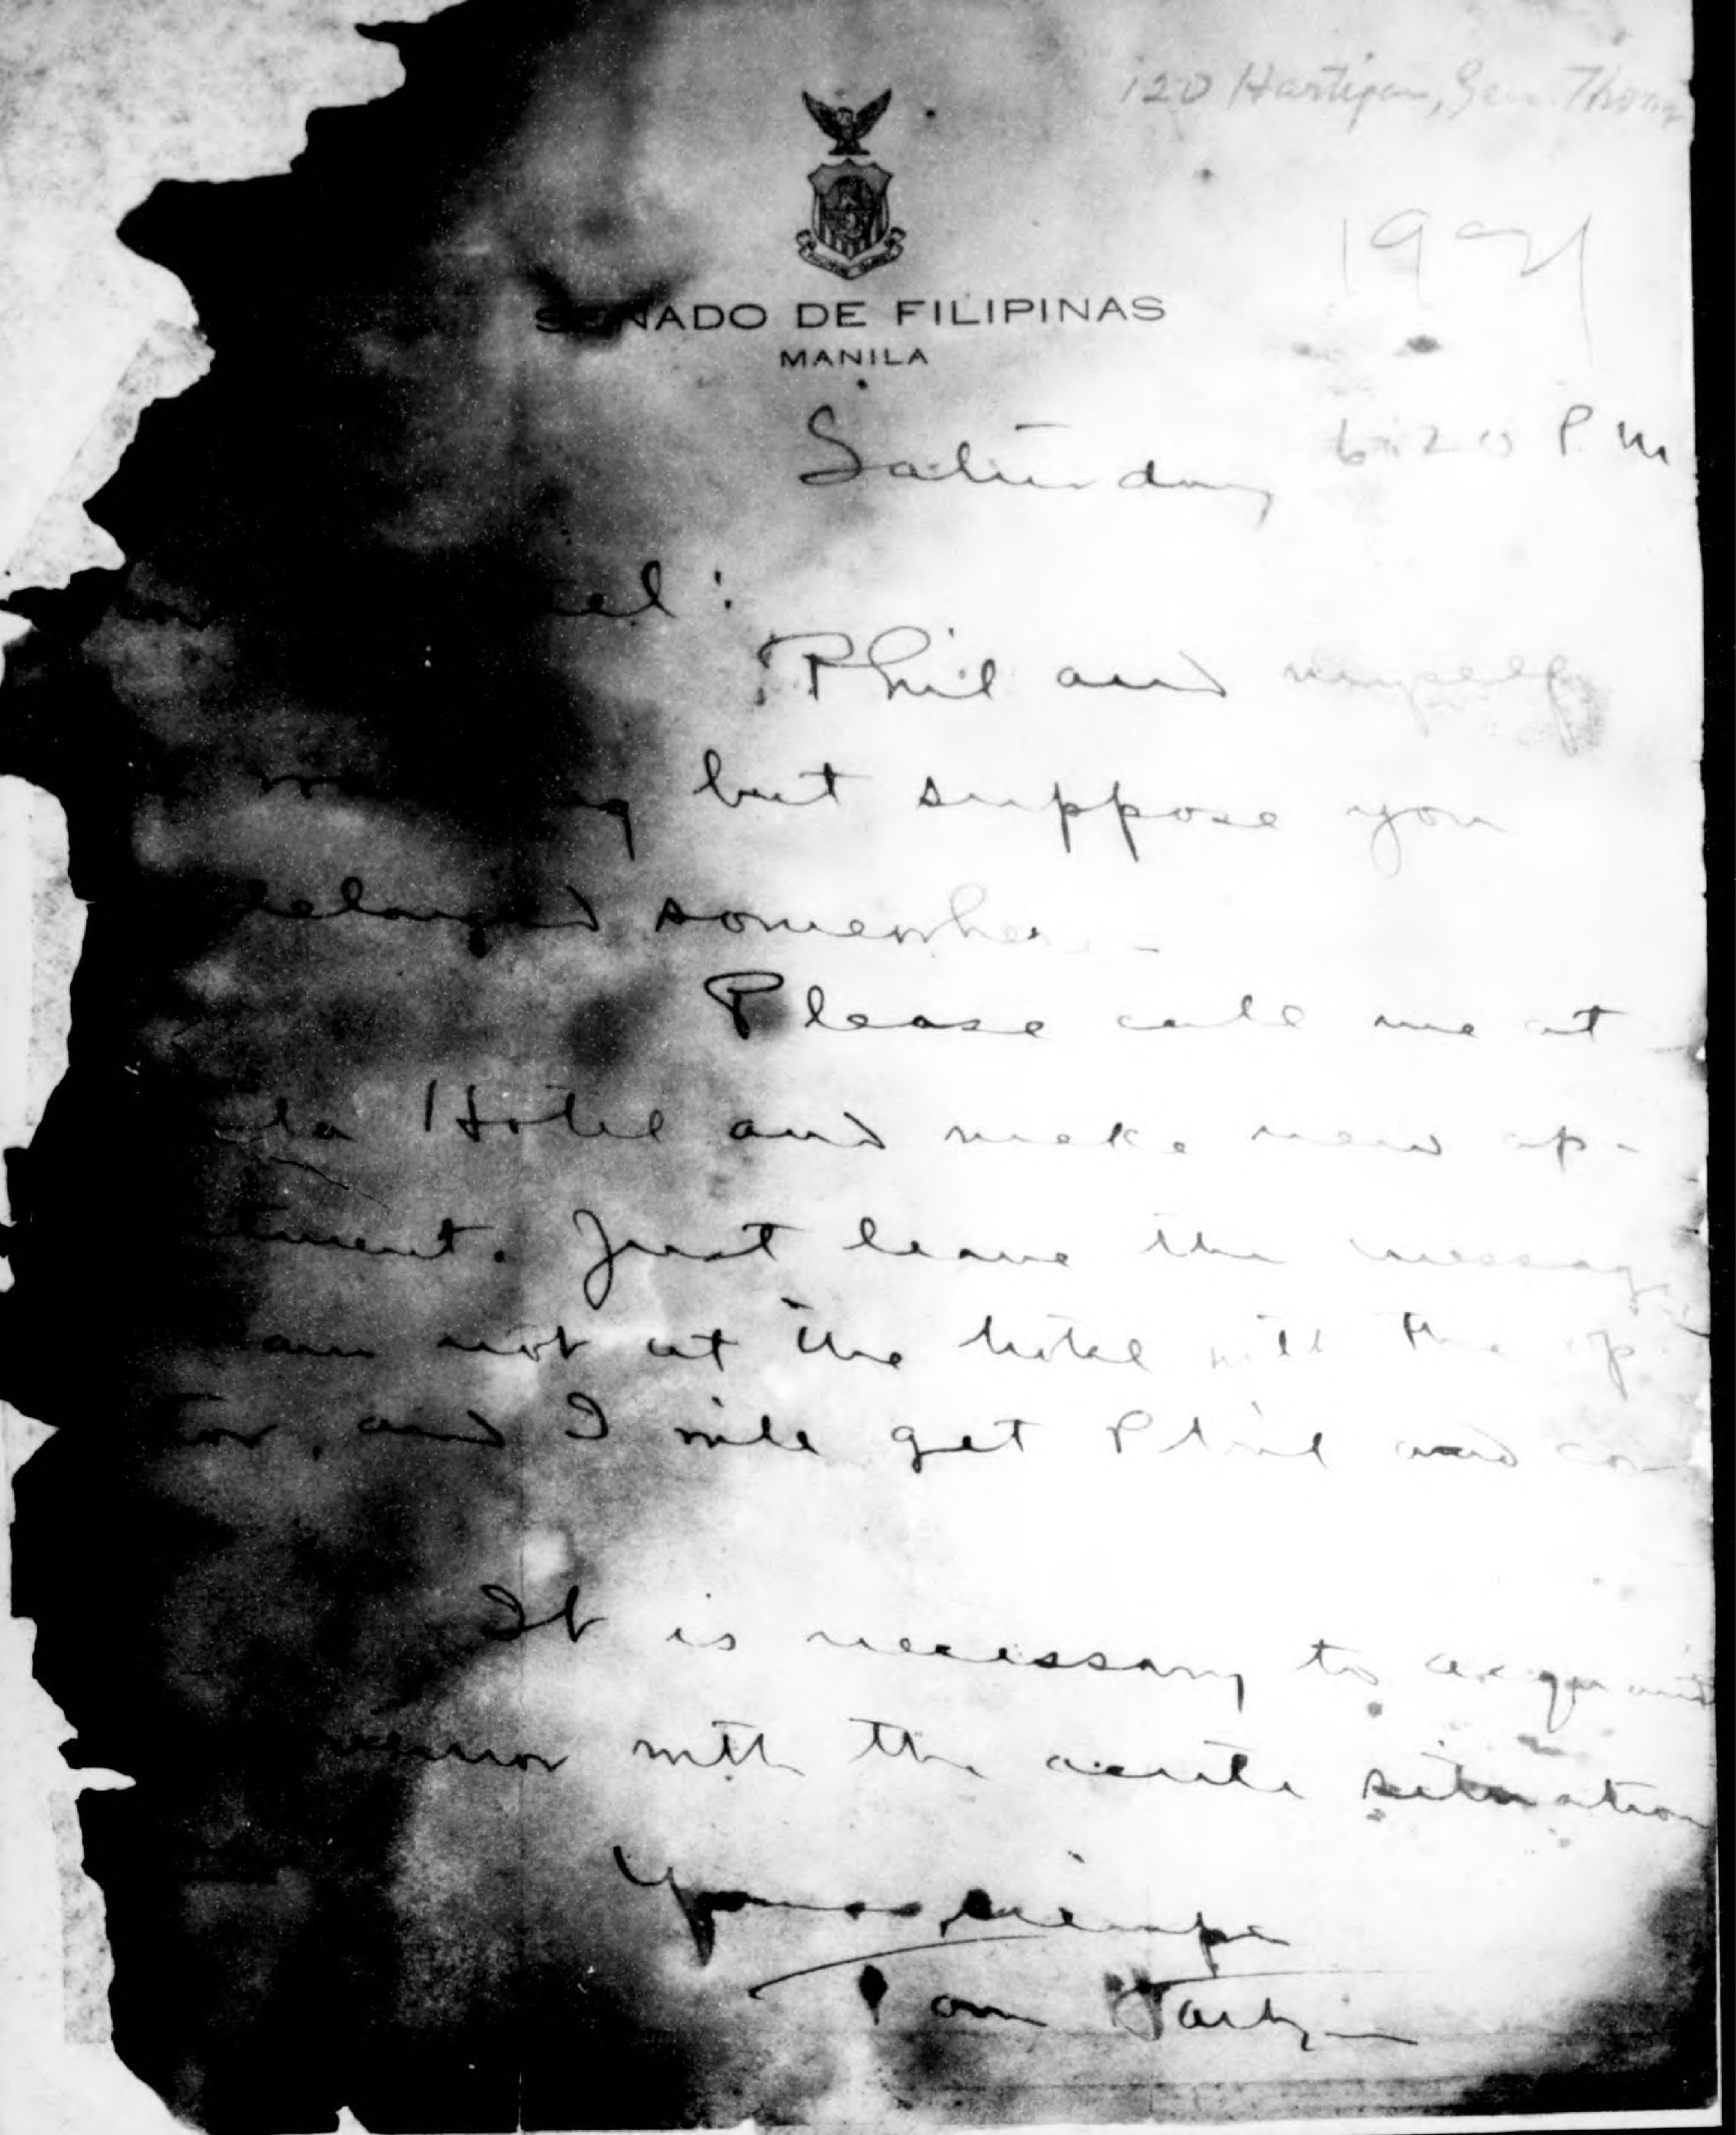 120 Hartigan, Gen. Thom
1921
SENADO DE FILIPINAS
MANILA
Saturday 6:20 P.M
uel:
Phil and myself
but suppose you
delayed somewhere -
Please call me at
la Hotel and make new ap-
tment. Just leave the messag
am not at the hotel with the op
tor, and I will get Phil and co
It is necessary to acquaint
with the acute situation
Yours siempre
Tom Hartigan